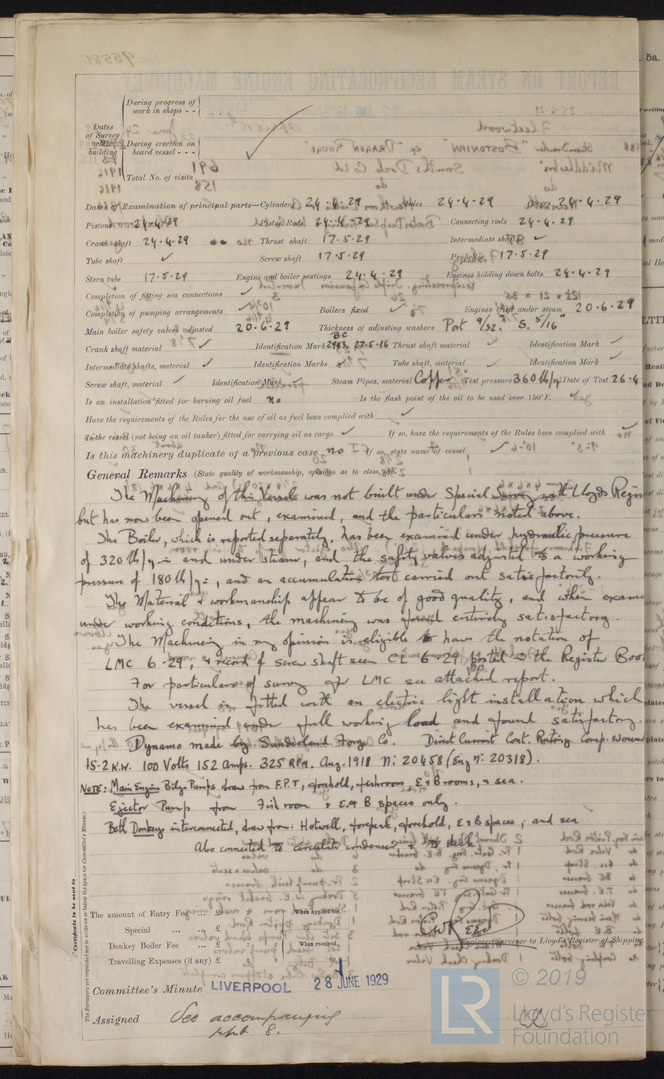 During progress of work in shops - -
Dates of Survey while building
During erection on board vessel - - -
Total No. of visits
Dates of Examination of principal parts—Cylinders 24.4.29 Slides 24.4.29 24.4.29
Pistons 24.4.29 Piston Rods 24.4.29 Connecting rods 24.4.29
Crank shaft 24.4.29 Thrust shaft 17.5.29 Intermediate shafts ✓
Tube shaft ✓ Screw shaft 17.5.29 Propeller 17.5.29
Stern tube 17.5.29 Engine and boiler seatings 24.4.29 Engines holding down bolts 24.4.29
Completion of fitting sea connections
Completion of pumping arrangements Boilers fixed ✓ Engines tried under steam 20.6.29
Main boiler safety valves adjusted 20.6.29 Thickness of adjusting washers Port 9/32" S. 5/16"
Crank shaft material ✓ Identification Mark BC 2983 27-5-16 Thrust shaft material ✓ Identification Mark ✓
Intermediate shafts, material ✓ Identification Marks ✓ Tube shaft, material ✓ Identification Mark ✓
Screw shaft, material ✓ Identification Mark Steam Pipes, material Copper Test pressure 360 lb/sq. Date of Test 26-4
Is an installation fitted for burning oil fuel no Is the flash point of the oil to be used over 150°F.
Have the requirements of the Rules for the use of oil as fuel been complied with
Is the vessel (not being an oil tanker) fitted for carrying oil as cargo ✓ If so, have the requirements of the Rules been complied with
Is this machinery duplicate of a previous case no If so, state name of vessel
General Remarks (State quality of workmanship, opinions as to class, &c.
The Machinery of this Vessel was not built under Special Survey with Lloyds Regis
but has now been opened out, examined, and the particulars noted above.
The Boiler, which is reported separately, has been examined under hydraulic pressure
of 320 lb/sq: and under steam, and the safety valves adjusted to a working
pressure of 180 lb/sq:, and an accumulation test carried out satisfactorily.
The Material & workmanship appear to be of good quality, and when exam
under working conditions, the machinery was found entirely satisfactory.
The Machinery in my opinion is eligible to have the notation of
LMC 6-29, & record of screw shaft seen CL 6-29 posted in the Register Book
For particulars of survey for LMC see attached report.
The vessel is fitted with an electric light installation which
has been examined under full working load and found satisfactory.
Dynamo made by Sunderland Forge Co. Direct Current Cont. Rating Comp. Wound
15.2 K.W. 100 Volts 152 Amps. 325 RPM. Aug. 1918 No: 20458 (Eng No: 20318).
NOTE: Main Engine Bilge Pumps draw from F.P.T, forehold, fishroom, E & B rooms, & sea.
Ejector Pump from Fish room & E & B spaces only.
Both Donkeys interconnected, draw from: Hotwell, forepeak, forehold, E & B spaces; and sea
Also connected to circulate condenser & to deck
Certificate to be sent to
The Surveyors are requested not to write on or below the space for Committee's Minute.
The amount of Entry Fee ... £ When applied for,
Special ... ... £
Donkey Boiler Fee ... £ When received,
Travelling Expenses (if any) £
Engineer Surveyor to Lloyd's Register of Shipping.
Committee's Minute LIVERPOOL 28 JUNE 1929
Assigned See accompanying
rpt 8.
© 2019
LR Lloyd's Register
Foundation